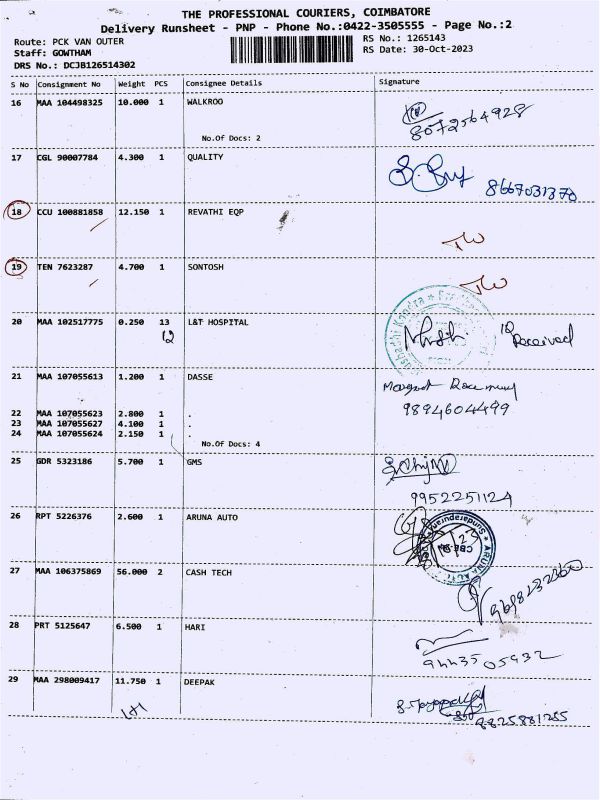 THE PROFESSIONAL COURIERS, COIMBATORE
Delivery Runsheet - PNP - Phone No.:0422-3505555 - Page No.:2
Route: PCK VAN OUTER
RS No.: 1265143
Staff: GOWTHAM
RS Date: 30-Oct-2023
DRS No.: DCJB126514302
S No Consignment No Weight PCS Consignee Details Signature
16 MAA 104498325 10.000 1 WALKROO
No.Of Docs: 2
8072564928
17 CGL 90007784 4.300 1 QUALITY
8667031370
18 CCU 100881858 12.150 1 REVATHI EQP
19 TEN 7623287 4.700 1 SONTOSH
20 MAA 102517775 0.250 13 L&T HOSPITAL
12
12 Received
21 MAA 107055613 1.200 1 DASSE
9894604499
22 MAA 107055623 2.800 1 .
23 MAA 107055627 4.100 1 .
24 MAA 107055624 2.150 1 .
No.Of Docs: 4
25 GDR 5323186 5.700 1 GMS
9952251124
26 RPT 5226376 2.600 1 ARUNA AUTO
27 MAA 106375869 56.000 2 CASH TECH
28 PRT 5125647 6.500 1 HARI
9443505932
29 MAA 298009417 11.750 1 DEEPAK
1+1
8825881255